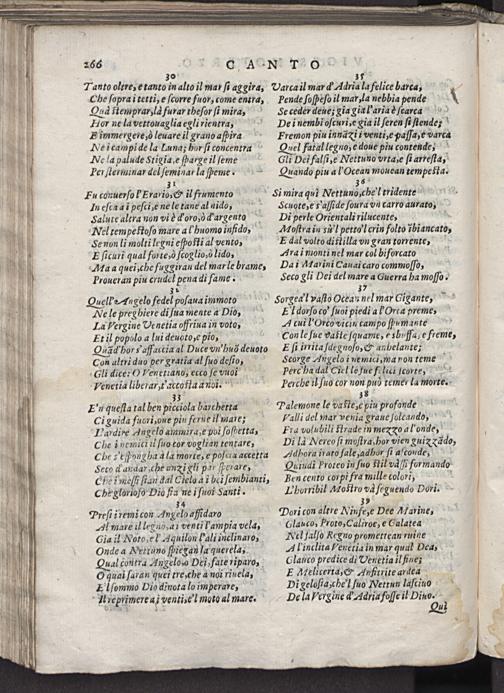 266
CANTO
30
Tanto oltre, e tanto in alto il mar si aggira,
Che sopra i tetti, e scorre fuor, come entra,
Quà stemprar, là furar thesor si mira,
Hor ne la vettovaglia egli rientra,
E immergere, ò levare il grano aspira
Ne i campi de la Luna; hor si concentra
Ne la palude Stigia, e sparge il seme
Per sterminar del seminar la speme.
31
Fu converso l'Erario, & il frumento
In esca a i pesci, e ne le tane al nido,
Salute altra non vi è d'oro, ò d'argento
Nel tempestoso mare a l'huomo infido,
Se non li molti legni esposti al vento,
E sicuri qual forte, ò scoglio, ò lido,
Ma a quei, che fuggiran del mar le brame,
Proveran piu crudel pena di fame.
32
Quell'Angelo fedel posava immoto
Ne le preghiere di sua mente a Dio,
La Vergine Venetia offriva in voto,
Et il popolo a lui devoto, e pio,
Quãd'hor s'affaccia al Duce un'huõ devoto
Con altri duo per gratia al suo desio,
Gli dice: O Venetiano, ecco se vuoi
Venetia liberar, t'accosta a noi.
33
E'n questa tal ben picciola barchetta
Ci guida fuori, ove piu ferve il mare;
L'ardire Angelo ammira, e poi sospetta,
Che i nemici il suo cor voglian tentare,
Che s'espongha a la morte, e poscia accetta
Seco d'andar, che anzi gli par sperare,
Che i messi sian dal Cielo a i bei sembianti,
Che glorioso Dio fia ne i suoi Santi.
34
Presi i remi con Angelo affidaro
Al mare il legno, a i venti l'ampia vela,
Gia il Noto, e l'Aquilon l'ali inclinaro,
Onde a Nettuno spiegan la querela,
Qual contra Angelo o Dei, fate riparo,
O quai saran quei tre, che à noi rivela,
E'l sommo Dio dinota lo imperare,
Il reprimere a i venti, e'l moto al mare.
35
Varca il mar d'Adria la felice barca,
Pende sospeso il mar, la nebbia pende
Se ceder deve; gia gia l'aria è scarca
De i nembi oscuri, e gia il seren si stende;
Fremon piu innãzi i venti, e passa, e varca
Quel fatal legno, e dove piu contende;
Gli Dei falsi, e Nettuno urta, e si arresta,
Quando piu a l'Ocean movean tempesta.
36
Si mira quì Nettuno, che'l tridente
Scuote, e s'asside sovra un carro aurato,
Di perle Orientali rilucente,
Mostra in sù'l petto'l crin folto ìbiancato,
E dal volto distilla un gran torrente,
Ara i monti nel mar col biforcato
Da i Marini Cavai caro commosso,
Seco gli Dei del mare a Guerra ha mosso.
37
Sorge a'l vasto Ocean nel mar Gigante,
E'l dorso co' suoi piedi a l'Orca preme,
A cui l'Orco vicin campo spumante
Con le sue vaste squame, e sbuffa, e freme,
E si irrita sdegnoso, & anhelante;
Scorge Angelo i nemici, ma non teme
Perc'ha dal Ciel le sue felici scorte,
Perche il suo cor non può temer la morte.
38
Palemone le vaste, e piu profonde
Valli del mar venia grave solcando,
Fra volubili strade in mezzo a l'onde,
Di là Nereo si mostra, hor vien guizzãdo,
Adhora irato sale, adhor si asconde,
Quindi Proteo in suo stil vassi formando
Ben cento corpi fra mille colori,
L'horribil Mostro và seguendo Dori.
39
Dori con altre Ninfe, e Dee Marine,
Glauco, Proto, Caliroe, e Galatea
Nel salso Regno promettean ruine
A l'inclita Venetia in mar qual Dea,
Glauco predice di Venetia il fine;
E Melicerta, & Anfitrite ardea
Di gelosia, che'l suo Nettun lascivo
De la Vergine d'Adria fosse il Divo.
Quì